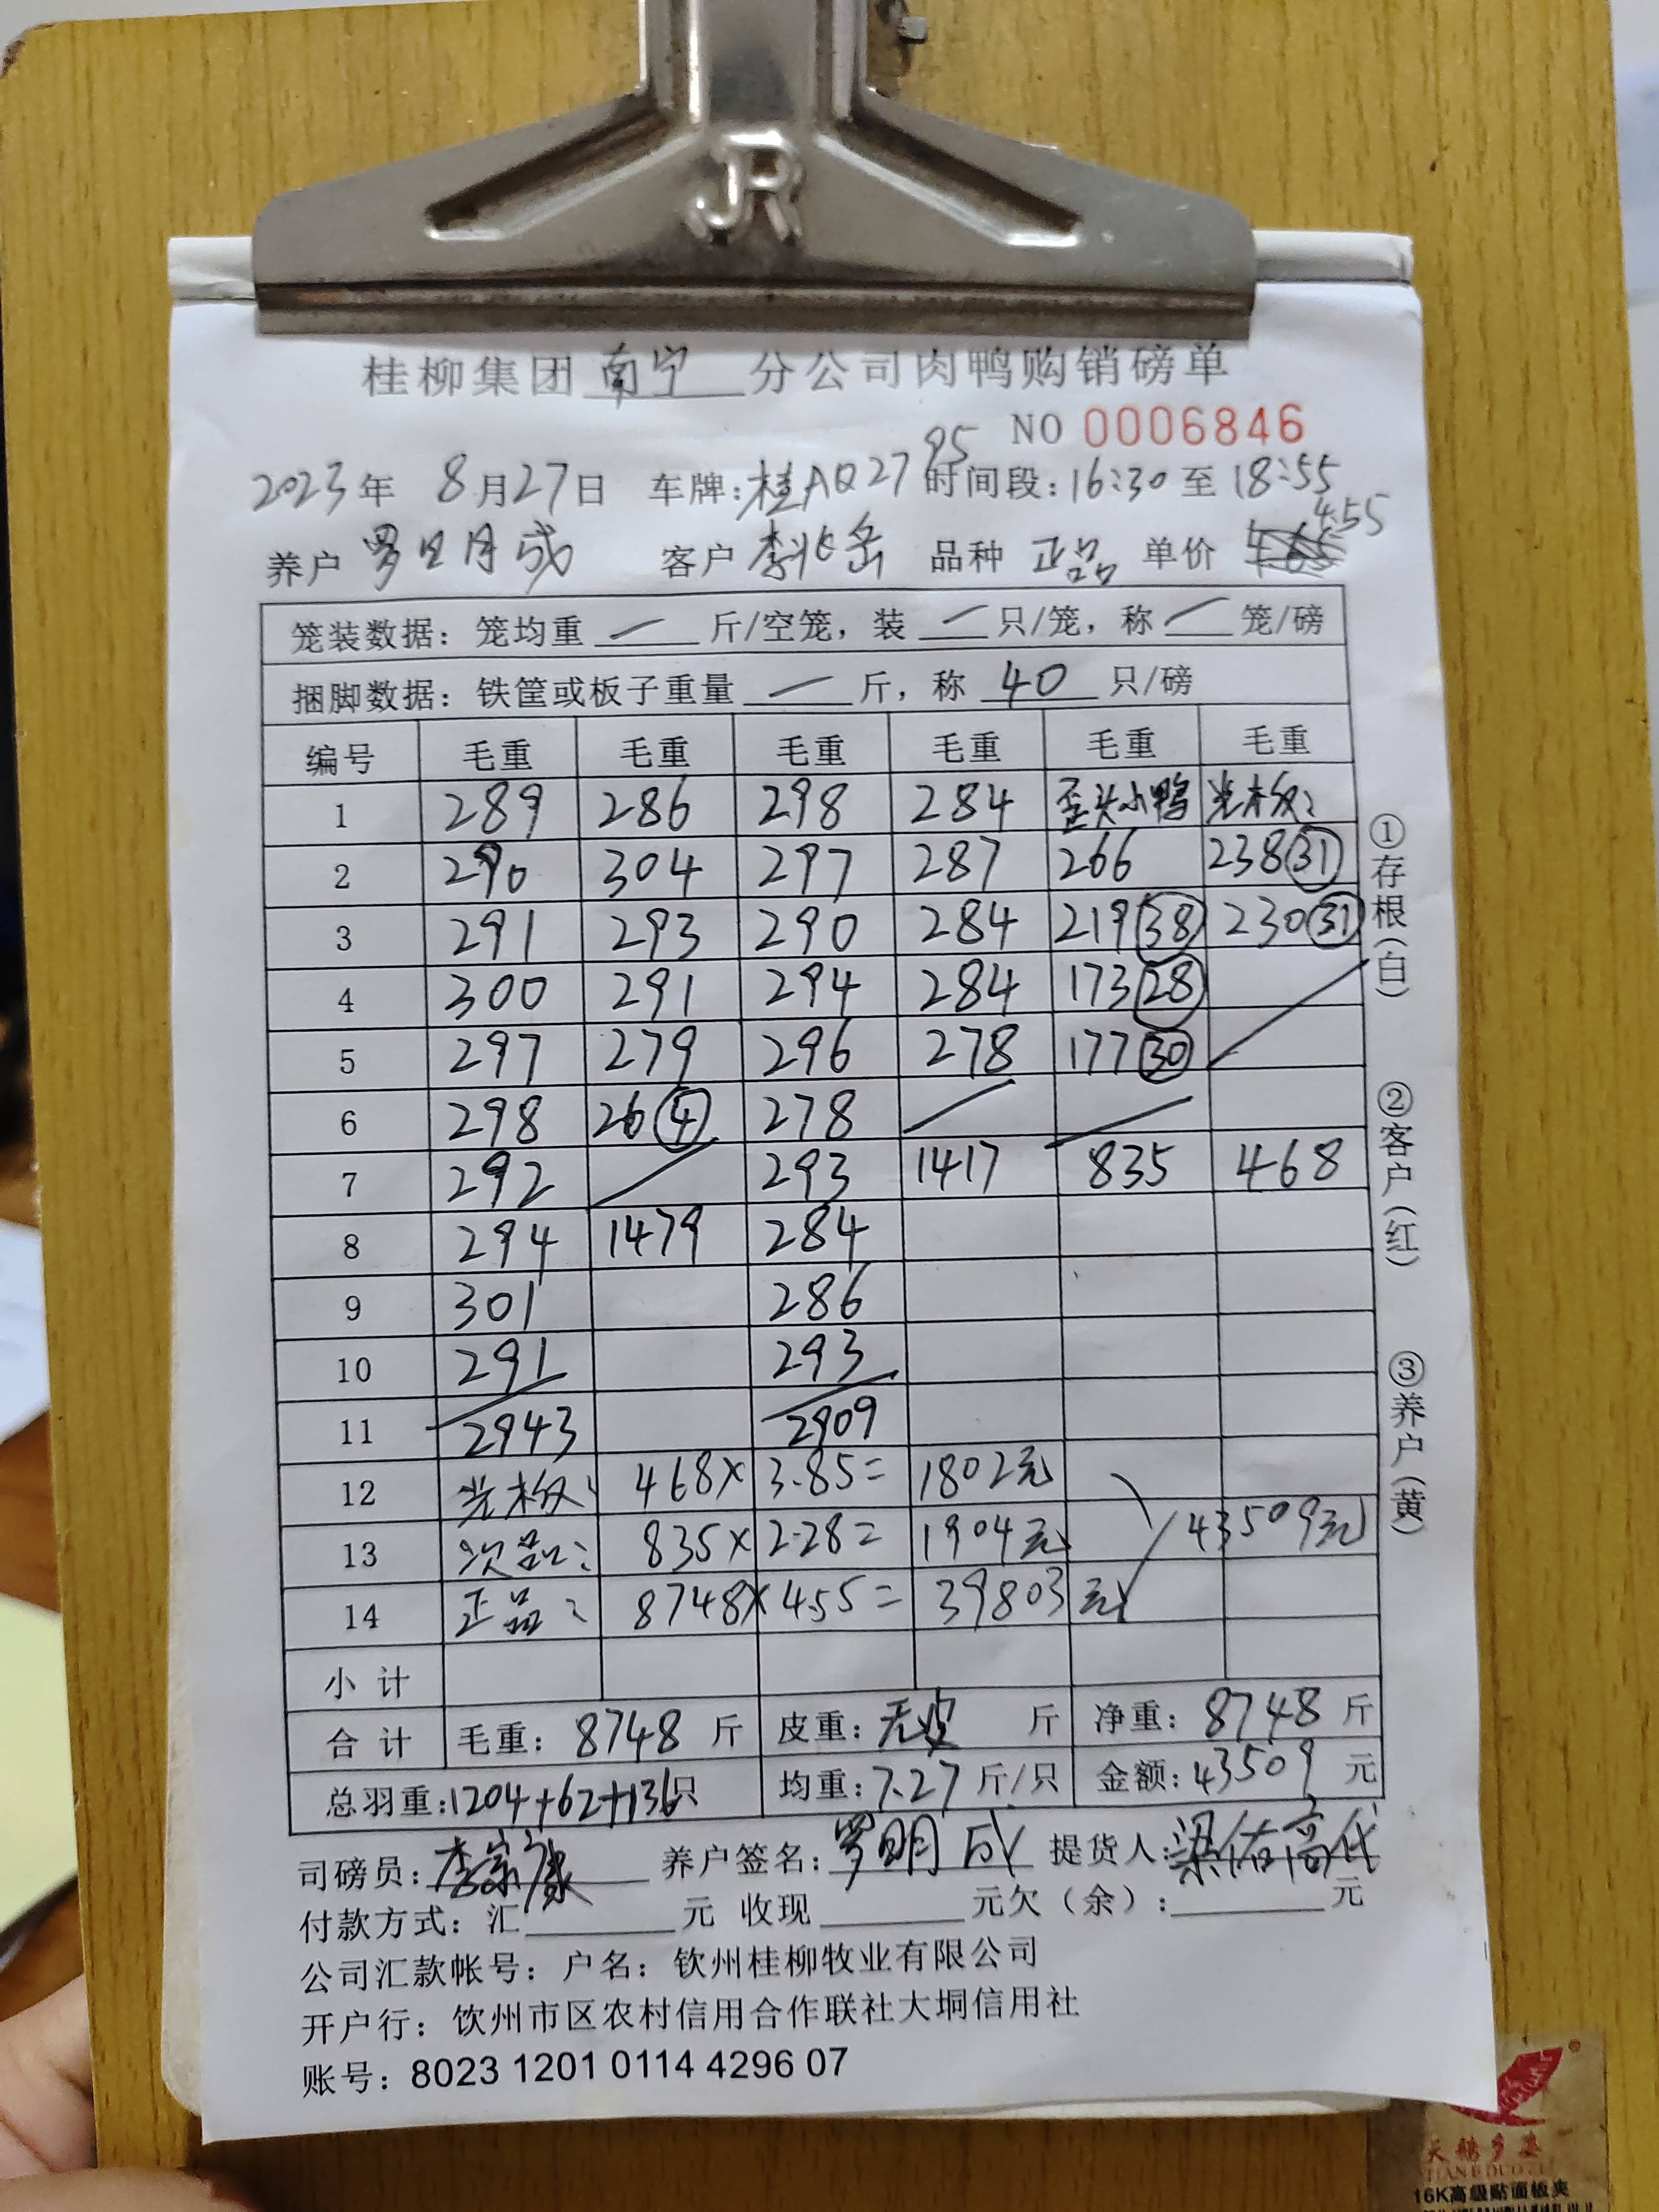 JR
桂柳集团南宁分公司肉鸭购销磅单
NO 0006846
2023年 8月27日 车牌:桂AQ2795 时间段:16:30至18:55
养户 罗明成 客户 李兆岳 品种 正品 单价 4.55
笼装数据: 笼均重 一 斤/空笼, 装 一 只/笼, 称 一 笼/磅
捆脚数据: 铁筐或板子重量 一 斤, 称 40 只/磅
编号 毛重 毛重 毛重 毛重 毛重 毛重
1 289 286 298 284 歪头小鸭 光板:
2 290 304 297 287 266 238㉛
3 291 293 290 284 219㊳ 230㉛
4 300 291 294 284 173㉘
5 297 279 296 278 177㉚
6 298 26④ 278
7 292 293 1417 835 468
8 294 1479 284
9 301 286
10 291 293
11 2943 2909
12 光板: 468× 3.85= 1802元
13 次品: 835× 2.28= 1904元 43509元
14 正品: 8748× 4.55= 39803元
小计
合计 毛重: 8748 斤 皮重: 无皮 斤 净重: 8748 斤
总羽重:1204+62+136只 均重:7.27斤/只 金额:43509 元
司磅员:李宗康 养户签名:罗明成 提货人:梁佑高代
付款方式: 汇 元 收现 元欠(余): 元
公司汇款帐号: 户名: 钦州桂柳牧业有限公司
开户行: 钦州市区农村信用合作联社大垌信用社
账号: 8023 1201 0114 4296 07
①存根(白)
②客户(红)
③养户(黄)
天鹅多姿
TIAN E DUO ZI
16K高级贴面板夹